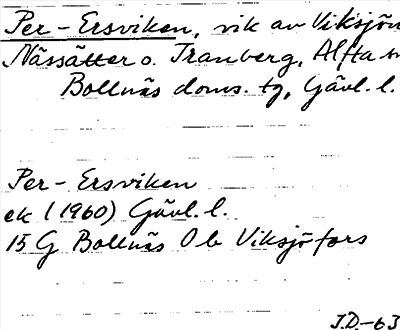 Per-Ersviken, vik av Viksjön
Nässätter o. Tranberg, Alfta sn
Bollnäs doms. tg, Gävl. l.
Per-Ersviken
ek (1960) Gävl. l.
15 G Bollnäs Ob Viksjöfors
J.D.-63